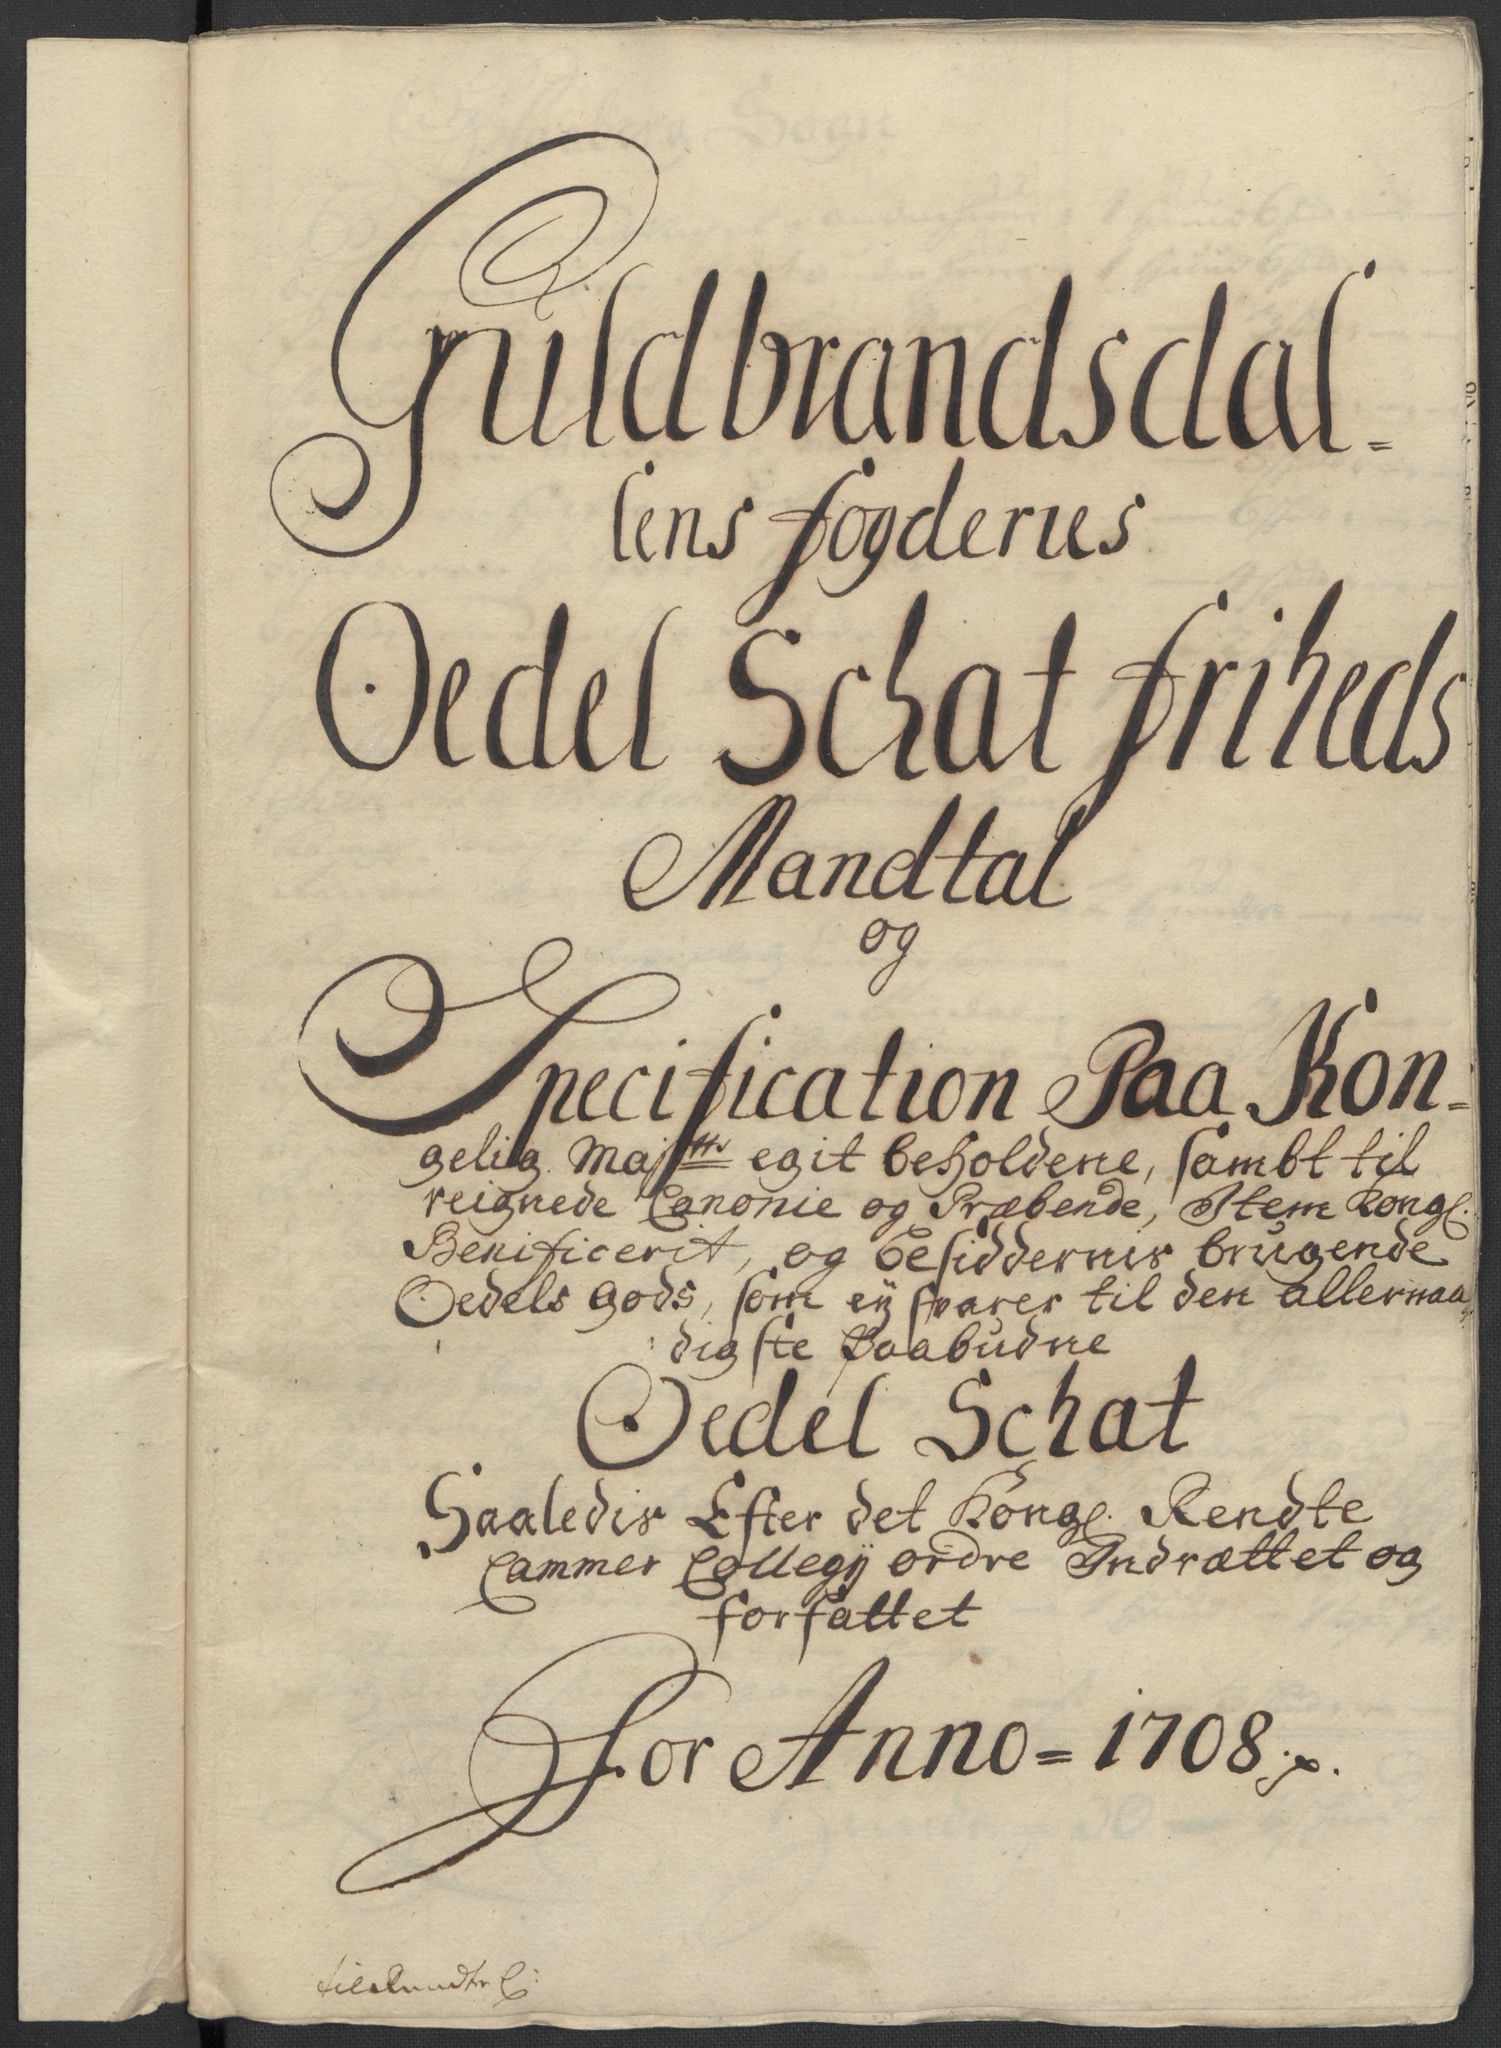 Guldbrandsdal=
lens fogderies
Oedel Schat friheds
Mandtal
og
Specification Paa Kon=
gelig Majtts egit beholdene, sambt til
reignede Canonie og Præbende, Item Kongl.
Benificerit, og besiddernis brugende
Oedels gods, som eÿ svarer til den allernaa
digste Paabudne
Oedel Schat
Saaledis Efter det Kongl. Rendte
Cammer Collegÿ ordre Indrættet og
forfattet
For Anno = 1708